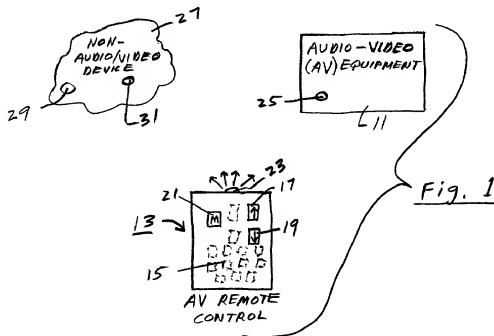 27
NON-
AUDIO/VIDEO
DEVICE
29
31
AUDIO-VIDEO
(AV) EQUIPMENT
25
11
Fig. 1
23
21
17
M
13
19
15
AV REMOTE
CONTROL